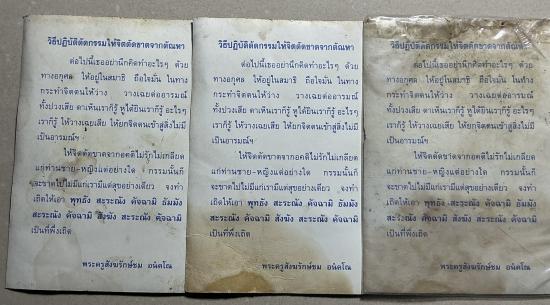 วิธีปฏิบัติตัดกรรมให้จิตตัดขาดจากตัณหา
ต่อไปนี้เธออย่านึกคิดทำอะไรๆ ด้วย
ทางอกุศล ให้อยู่ในสมาธิ ถือใจมั่น ในทาง
กระทำจิตตนให้ว่าง วางเฉยต่ออารมณ์
ทั้งปวงเสีย ตาเห็นเราก็รู้ หูได้ยินเราก็รู้ อะไรๆ
เราก็รู้ ให้วางเฉยเสีย ให้ยกจิตตนเข้าสู่สิ่งไม่มี
เป็นอารมณ์ฯ
ให้จิตตัดขาดจากอคติไม่รักไม่เกลียด
แก่ท่านชาย-หญิงแต่อย่างใด กรรมนั้นก็
จะขาดไปไม่มีแก่เรามีแต่สุขอย่างเดียว จงทำ
เถิดให้เอา พุทธัง สะระณัง คัจฉามิ ธัมมัง
สะระณัง คัจฉามิ สังฆัง สะระณัง คัจฉามิ
เป็นที่พึ่งเถิด
พระครูสังฆรักษ์ชม อนังคโณ
วิธีปฏิบัติตัดกรรมให้จิตตัดขาดจากตัณหา
ต่อไปนี้เธออย่านึกคิดทำอะไรๆ ด้วย
ทางอกุศล ให้อยู่ในสมาธิ ถือใจมั่น ในทาง
กระทำจิตตนให้ว่าง วางเฉยต่ออารมณ์
ทั้งปวงเสีย ตาเห็นเราก็รู้ หูได้ยินเราก็รู้ อะไรๆ
เราก็รู้ ให้วางเฉยเสีย ให้ยกจิตตนเข้าสู่สิ่งไม่มี
เป็นอารมณ์ฯ
ให้จิตตัดขาดจากอคติไม่รักไม่เกลียด
แก่ท่านชาย-หญิงแต่อย่างใด กรรมนั้นก็
จะขาดไปไม่มีแก่เรามีแต่สุขอย่างเดียว จงทำ
เถิดให้เอา พุทธัง สะระณัง คัจฉามิ ธัมมัง
สะระณัง คัจฉามิ สังฆัง สะระณัง คัจฉามิ
เป็นที่พึ่งเถิด
พระครูสังฆรักษ์ชม อนังคโณ
วิธีปฏิบัติตัดกรรมให้จิตตัดขาดจากตัณหา
ต่อไปนี้เธออย่านึกคิดทำอะไรๆ ด้วย
ทางอกุศล ให้อยู่ในสมาธิ ถือใจมั่น ในทาง
กระทำจิตตนให้ว่าง วางเฉยต่ออารมณ์
ทั้งปวงเสีย ตาเห็นเราก็รู้ หูได้ยินเราก็รู้ อะไรๆ
เราก็รู้ ให้วางเฉยเสีย ให้ยกจิตตนเข้าสู่สิ่งไม่มี
เป็นอารมณ์ฯ
ให้จิตตัดขาดจากอคติไม่รักไม่เกลียด
แก่ท่านชาย-หญิงแต่อย่างใด กรรมนั้นก็
จะขาดไปไม่มีแก่เรามีแต่สุขอย่างเดียว จงทำ
เถิดให้เอา พุทธัง สะระณัง คัจฉามิ ธัมมัง
สะระณัง คัจฉามิ สังฆัง สะระณัง คัจฉามิ
เป็นที่พึ่งเถิด
พระครูสังฆรักษ์ชม อนังคโณ